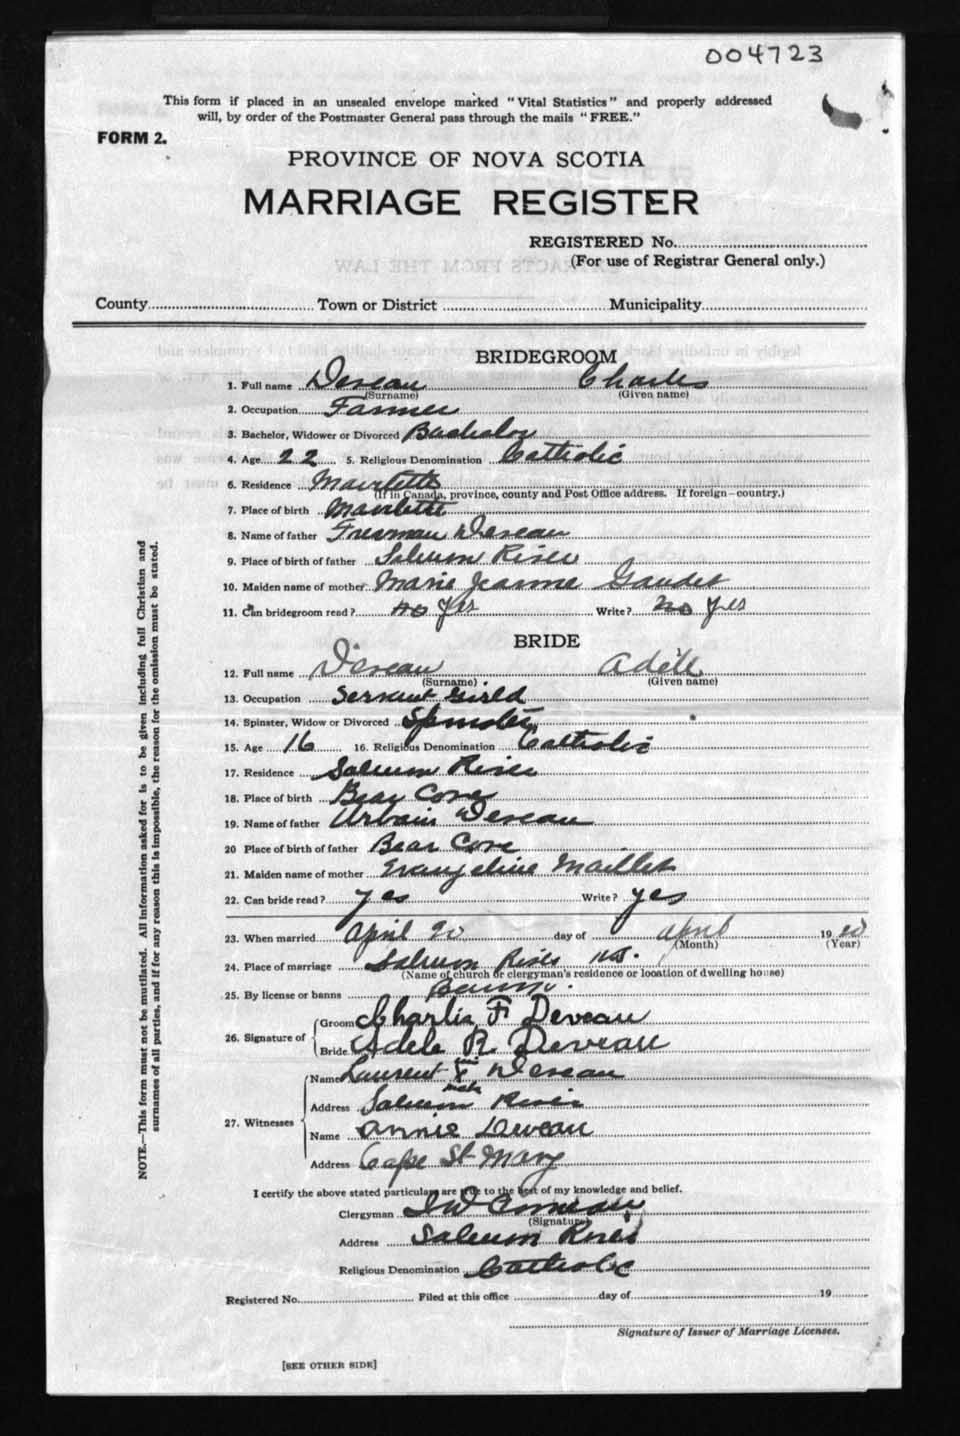 004723
This form if placed in an unsealed envelope marked "Vital Statistics" and properly addressed
will, by order of the Postmaster General pass through the mails "FREE."
FORM 2.
PROVINCE OF NOVA SCOTIA
MARRIAGE REGISTER
REGISTERED No.
(For use of Registrar General only.)
County Town or District Municipality
BRIDEGROOM
1. Full name Deveau Charles
(Surname) (Given name)
2. Occupation Farmer
3. Bachelor, Widower or Divorced Bachelor
4. Age 22 5. Religious Denomination Catholic
6. Residence Mavilette
(If in Canada, province, county and Post Office address. If foreign-country.)
7. Place of birth Mavilette
8. Name of father Freeman Deveau
9. Place of birth of father Salmon River
10. Maiden name of mother Marie Jeanne Gaudet
11. Can bridegroom read? no yes Write? no yes
BRIDE
12. Full name Deveau Adèle
(Surname) (Given name)
13. Occupation Servant Girld
14. Spinster, Widow or Divorced Spinster
15. Age 16 16. Religious Denomination Catholic
17. Residence Salmon River
18. Place of birth Bear Cove
19. Name of father Urbain Deveau
20 Place of birth of father Bear Cove
21. Maiden name of mother Evangeline Maillet
22. Can bride read? yes Write? yes
23. When married April 20 day of April 1920
(Month) (Year)
24. Place of marriage Salmon River N.S.
(Name of church or clergyman's residence or location of dwelling house)
25. By license or banns Banns.
26. Signature of Groom Charlie F Deveau
Bride Adele R Deveau
27. Witnesses Name Laurent X Deveau
mark
Address Salmon River
Name Annie Deveau
Address Cape St Mary
I certify the above stated particulars are true to the best of my knowledge and belief.
Clergyman Comeau
(Signature)
Address Salmon River
Religious Denomination Catholic
Registered No. Filed at this office day of 19
Signature of Issuer of Marriage Licenses.
[SEE OTHER SIDE]
NOTE.—This form must not be mutilated. All information asked for is to be given including full Christian and
surnames of all parties, and if for any reason this is impossible, the reason for the omission must be stated.